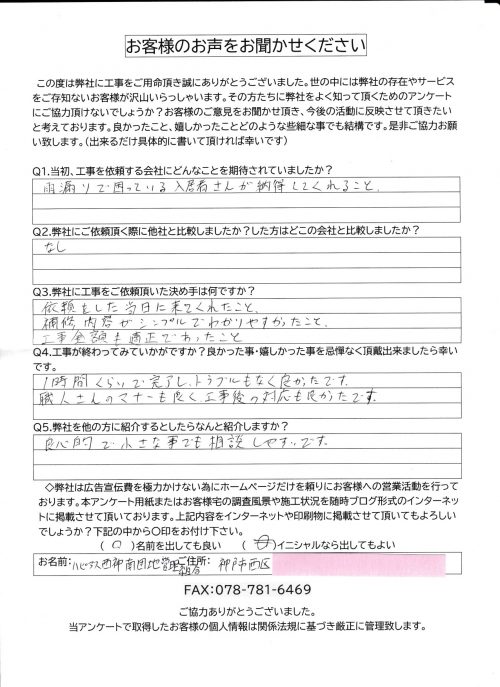 お客様のお声をお聞かせください
この度は弊社に工事をご用命頂き誠にありがとうございました。世の中には弊社の存在やサービス
をご存知ないお客様が沢山いらっしゃいます。その方たちに弊社をよく知って頂くためのアンケート
にご協力頂けないでしょうか？お客様のご意見をお聞かせ頂き、今後の活動に反映させて頂きたい
と考えております。良かったこと、嬉しかったことどのような些細な事でも結構です。是非ご協力お願
い致します。（出来るだけ具体的に書いて頂ければ幸いです）
Q1.当初、工事を依頼する会社にどんなことを期待されていましたか？
雨漏りで困っている入居者さんが納得してくれること、
Q2.弊社にご依頼頂く際に他社と比較しましたか？した方はどこの会社と比較しましたか？
なし
Q3.弊社に工事をご依頼頂いた決め手は何ですか？
依頼をした当日に来てくれたこと、
補修内容がシンプルでわかりやすかったこと
工事金額も適正であったこと
Q4.工事が終わってみていかがですか？良かった事・嬉しかった事を忌憚なく頂戴出来ましたら幸い
です。
1時間くらいで完了し、トラブルもなく良かったです。
職人さんのマナーも良く、工事後の対応も良かったです。
Q5.弊社を他の方に紹介するとしたらなんと紹介しますか？
良心的で小さな事でも相談しやすいです。
◇弊社は広告宣伝費を極力かけない為にホームページだけを頼りにお客様への営業活動を行って
おります。本アンケート用紙またはお客様宅の調査風景や施工状況を随時ブログ形式のインターネッ
トに掲載させて頂いております。上記内容をインターネットや印刷物に掲載させて頂いてもよろしい
でしょうか？下記の中から〇印をお付け下さい。
（ 〇 ）名前を出しても良い （ 〇 ）イニシャルなら出してもよい
お名前: 西神南団地管理組合 ご住所: 神戸市西区
FAX:078-781-6469
ご協力ありがとうございました。
当アンケートで取得したお客様の個人情報は関係法規に基づき厳正に管理致します。